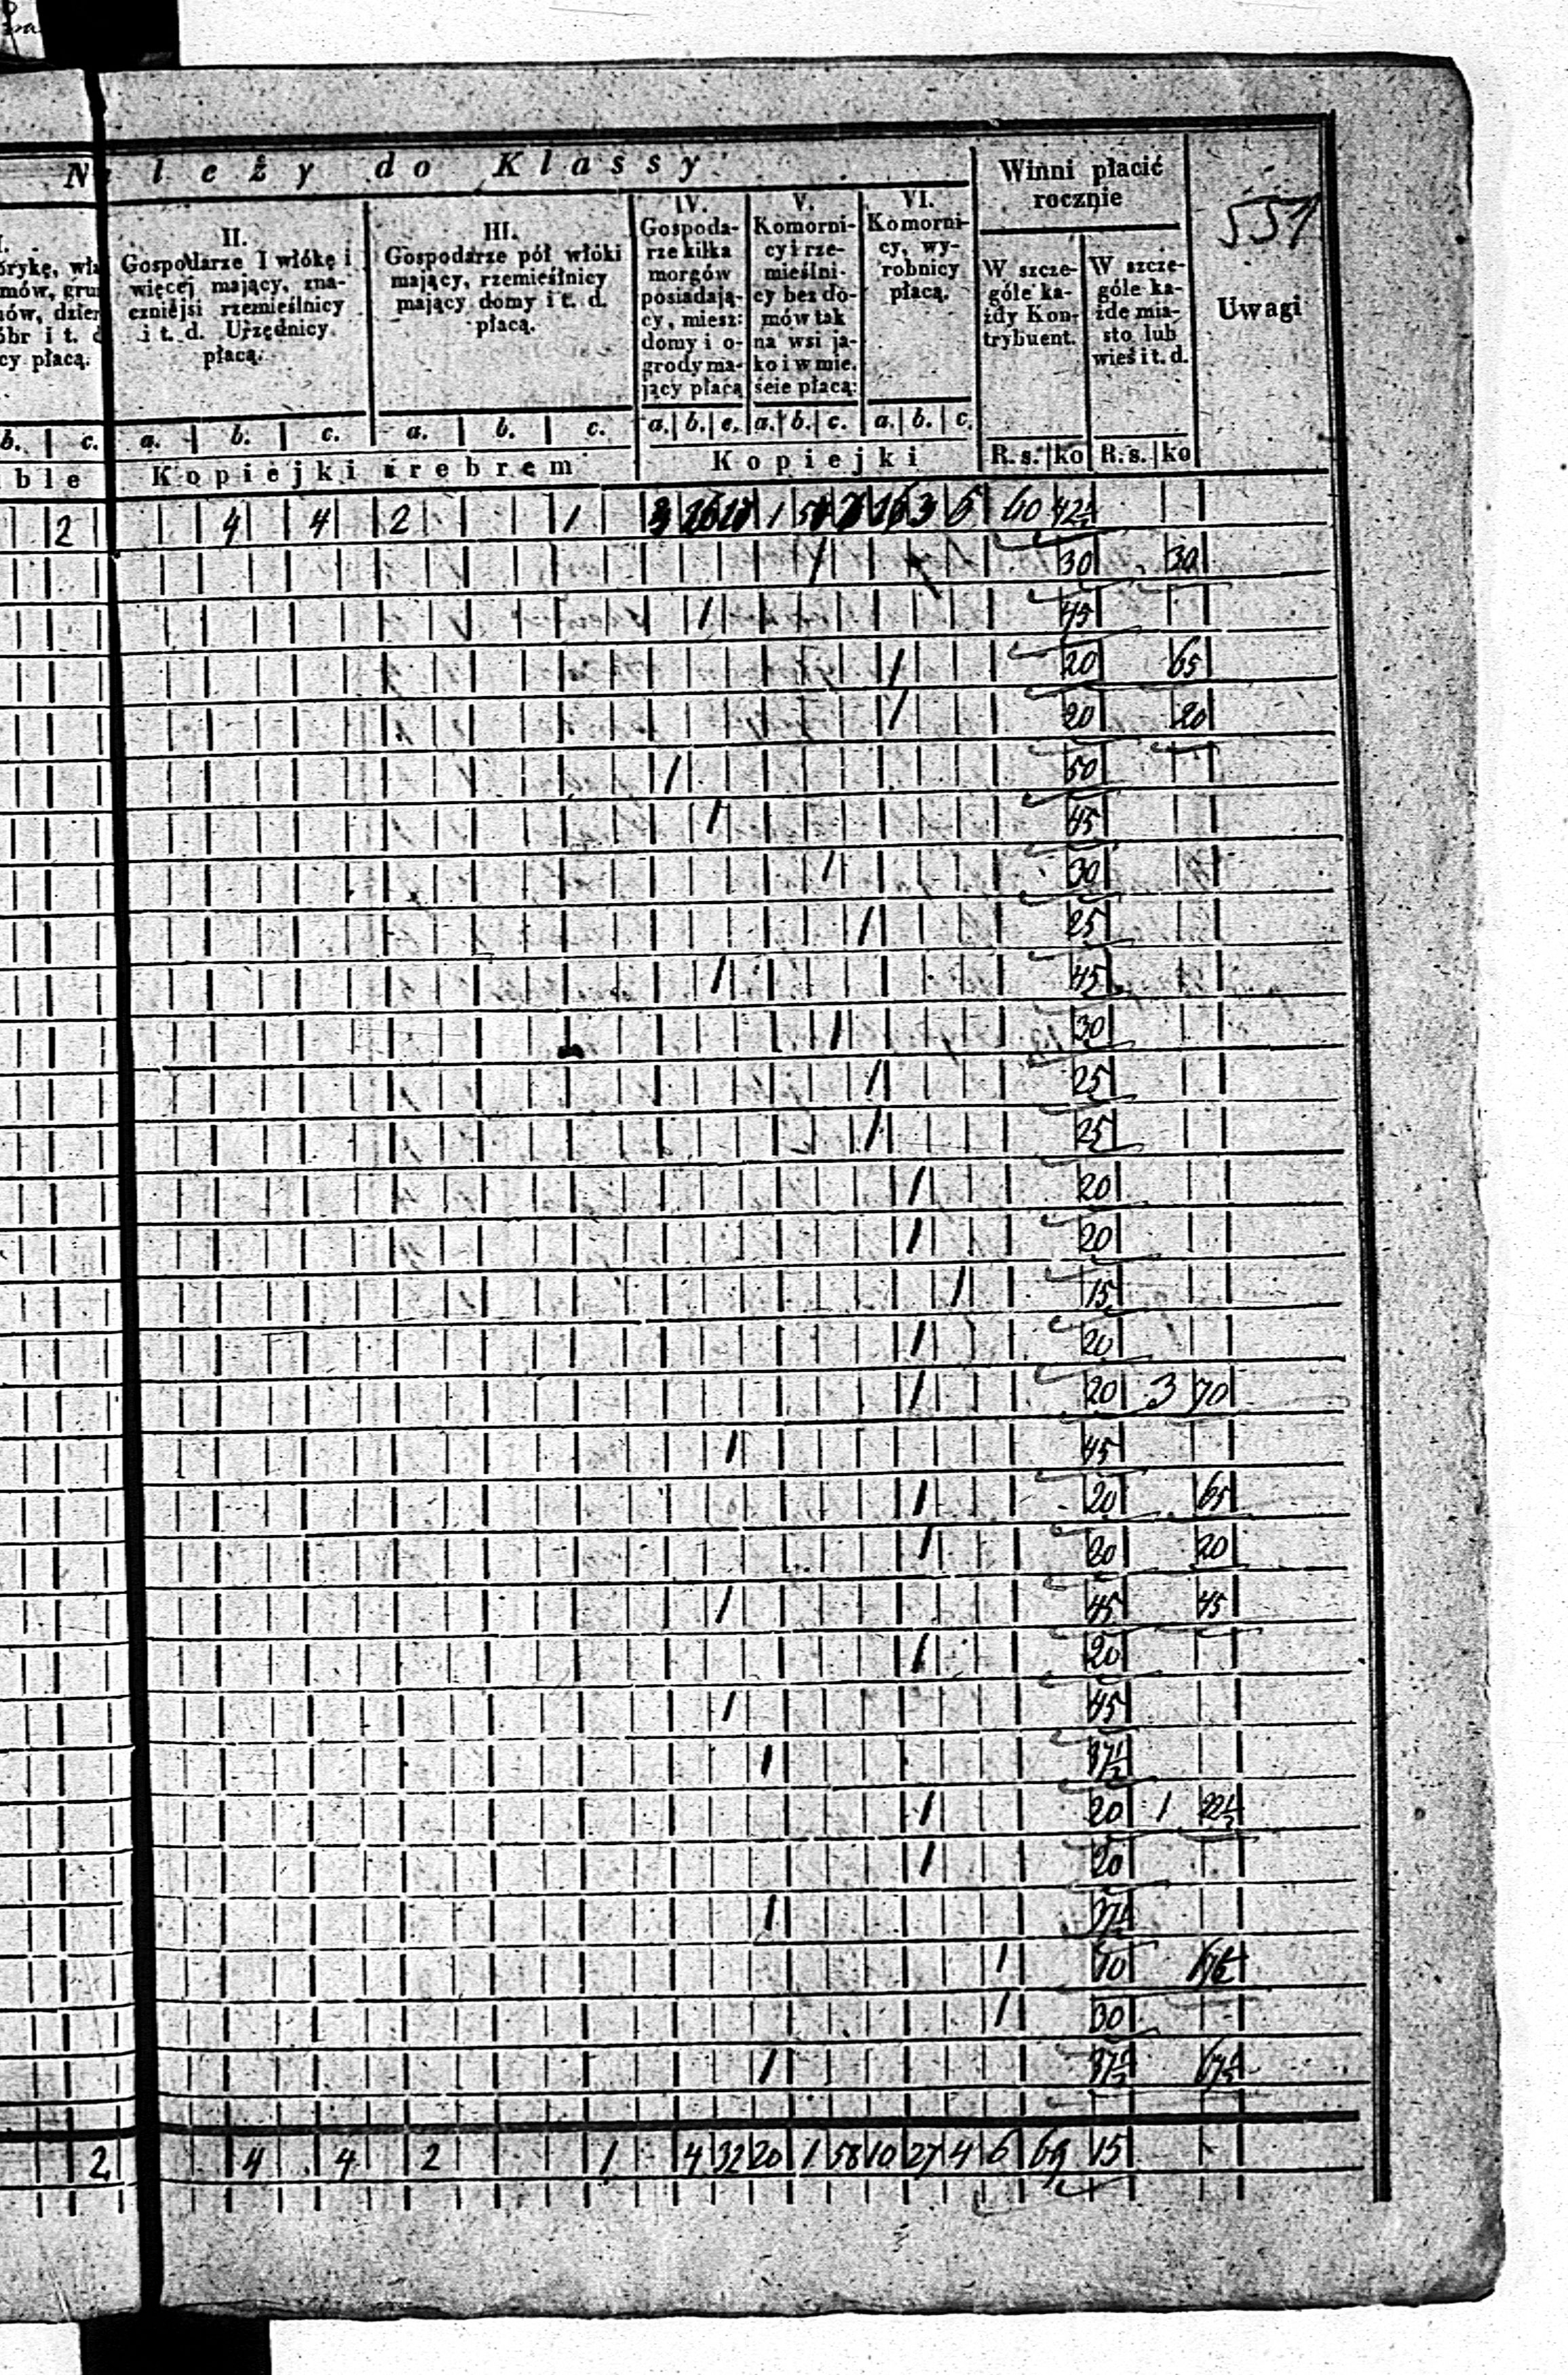 Należy do Klassy
Winni płacić
rocznie
551
Uwagi
II.
Gospodarze 1 włókę i
więcej mający, zna-
czniejsi rzemieślnicy
i t. d. Urzędnicy
płacą.
III.
Gospodarze pół włóki
mający, rzemieślnicy
mający domy i t. d.
płacą.
IV.
Gospoda-
rze kilka
morgów
posiadają-
cy, miesz:
domy i o-
grody ma-
jący płacą
V.
Komorni-
cy i rze-
mieślni-
cy bez do-
mów tak
na wsi ja-
ko i w mie-
ście płacą:
VI.
Komorni-
cy, wy-
robnicy
płacą.
W szcze-
góle ka-
żdy Kon-
trybuent.
W szcze-
góle ka-
żde mia-
sto lub
wieś i t. d.
cy płacą.
b. c. a. b. c. a. b. c. a. b. c. a. b. c. a. b. c.
ble Kopiejki srebrem Kopiejki R. s. ko R. s. ko
2 4 4 2 1 1 3 60 42½
1 30 30
1 45
1 20 65
1 20 20
1 50
1 45
1 30
1 25
1 45
1 30
1 25
1 25
1 20
1 20
1 15
1 20
1 20 3 70
1 45
1 20 65
1 20 20
1 45 45
1 20
1 45
1 37½
1 20 1 22½
1 20
1 37½
1 10
1 30
1 37½ 67½
2 4 4 2 1 4 32 20 1 58 10 27 4 6 69 15